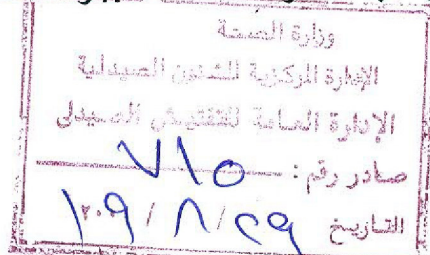 وزارة الصحة
الإدارة المركزية للشئون الصيدلية
الإدارة العامة للتفتيش الصيدلى
صادر رقم : ٧١٥
التاريخ ٢٩ / ٨ /